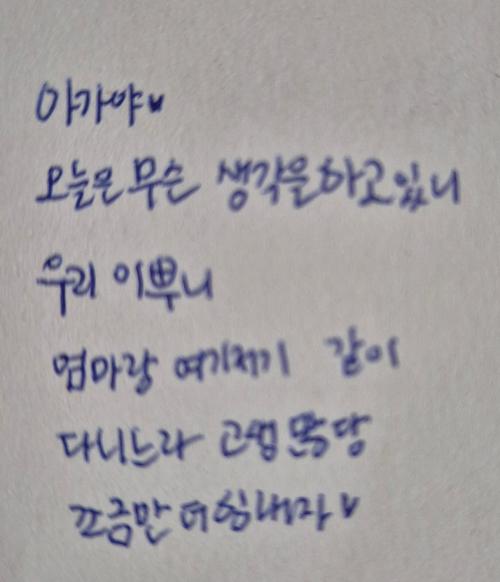 아가야♥
오늘은 무슨 생각을하고있니
우리 이쁘니
엄마랑 여기저기 같이
다니느라 고생 많당
쪼금만 더 힘내자♥